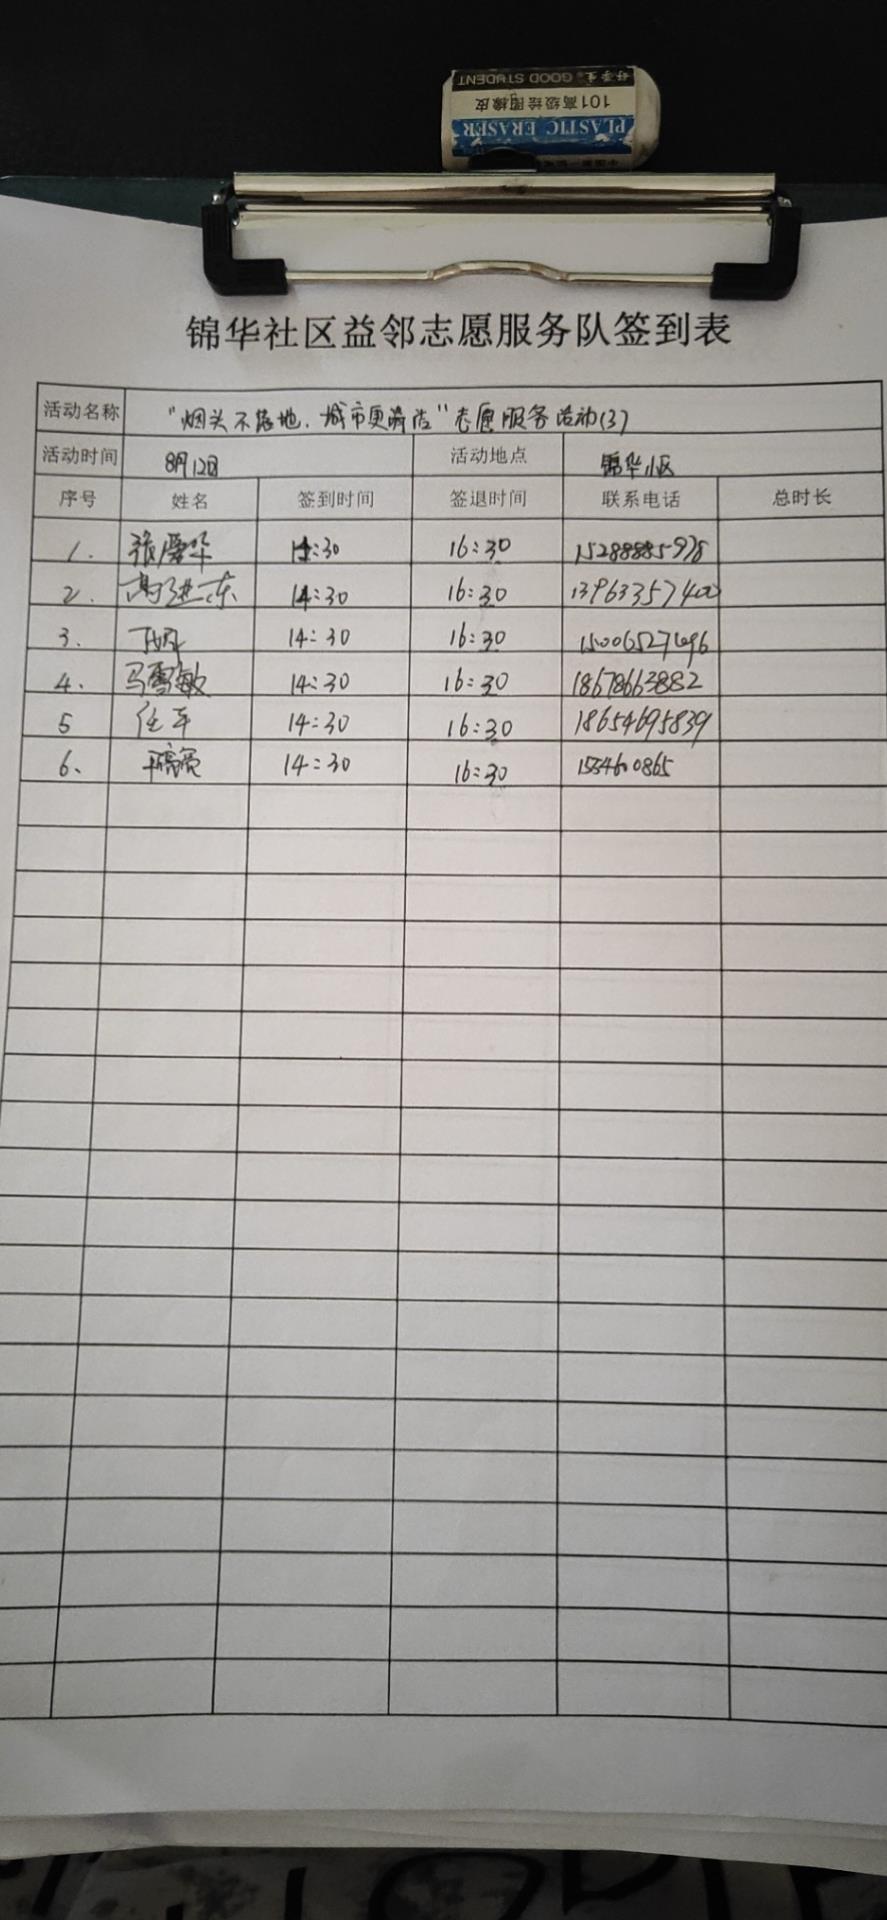 好学生 GOOD STUDENT
101高级绘图橡皮
PLASTIC ERASER
锦华社区益邻志愿服务队签到表
活动名称 "烟头不落地,城市更清洁"志愿服务活动(3)
活动时间 8月12日 活动地点 锦华小区
序号 姓名 签到时间 签退时间 联系电话 总时长
1. 张 华 14:30 16:30 15288885978
2. 高进东 14:30 16:30 13963357400
3. 14:30 16:30
4. 马雪敏 14:30 16:30 18678663882
5 任军 14:30 16:30 18654695839
6、 14:30 16:30